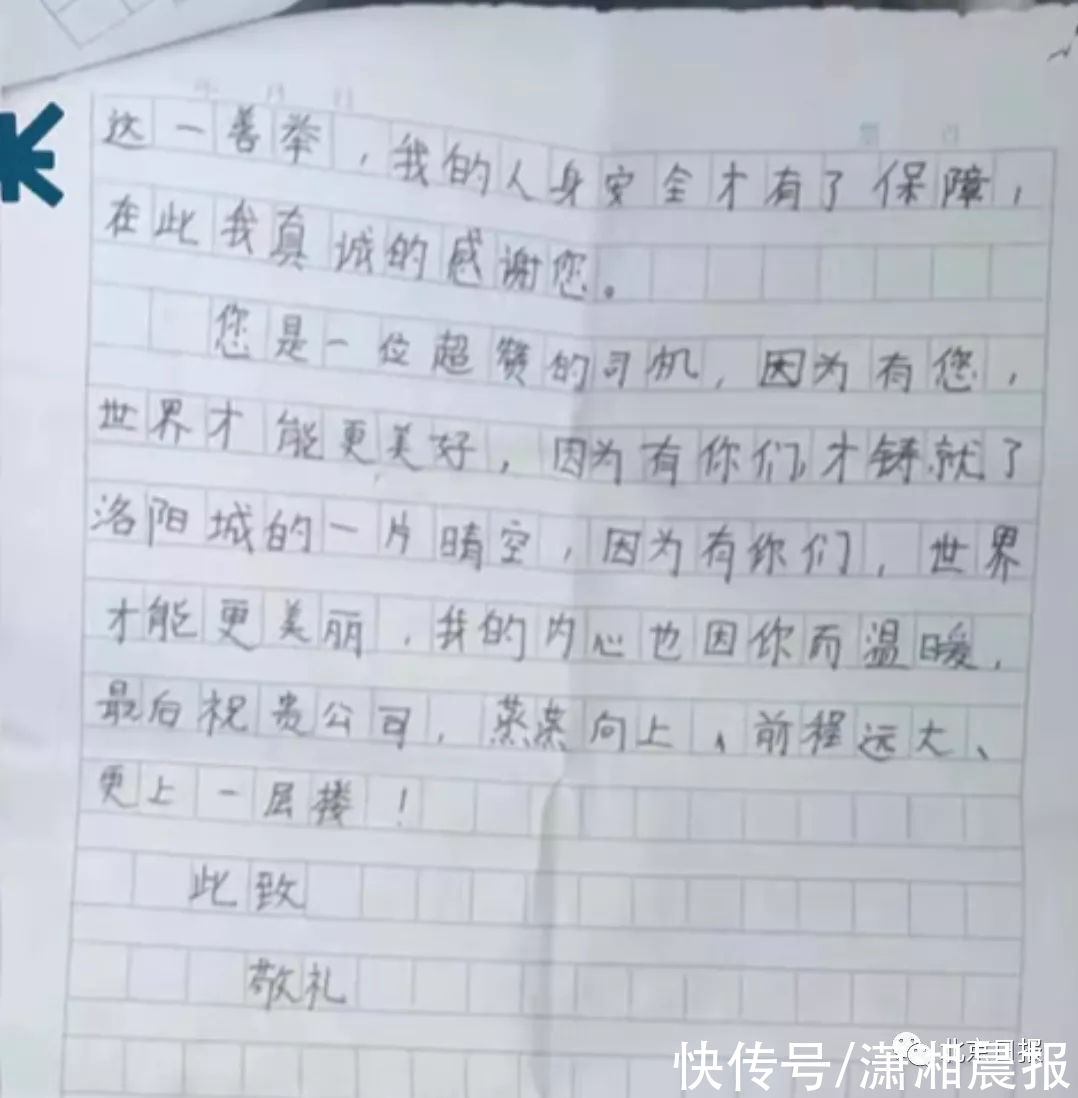 年 月 日
第 页
这一善举，我的人身安全才有了保障，
在此我真诚的感谢您。
您是一位超赞的司机，因为有您，
世界才能更美好，因为有你们才铸就了
洛阳城的一片晴空，因为有你们，世界
才能更美丽，我的内心也因你而温暖，
最后祝贵公司，蒸蒸向上、前程远大、
更上一层楼！
此致
敬礼
北京日报
快传号/潇湘晨报